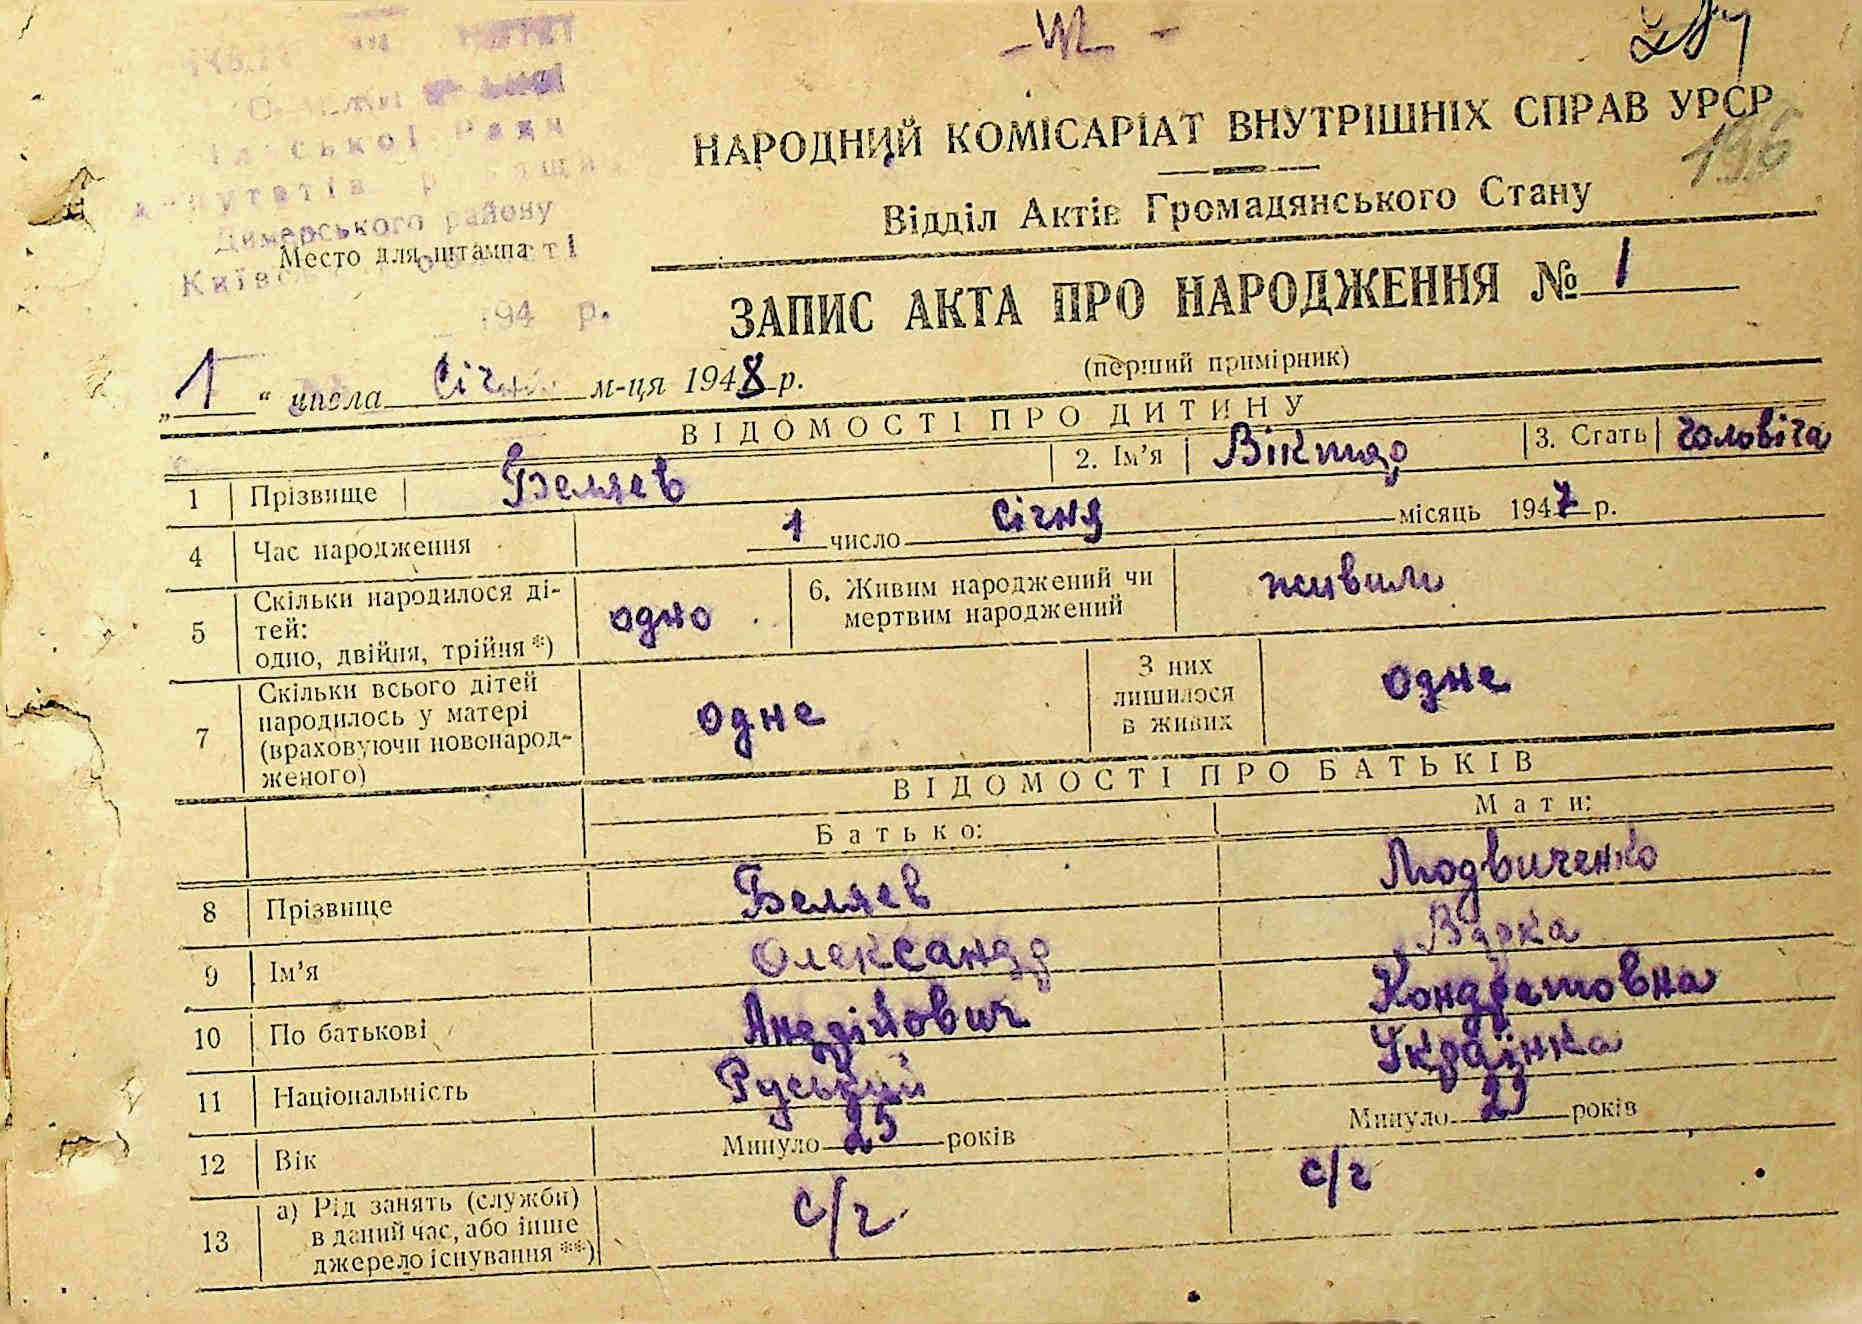 НАРОДНИЙ КОМІСАРІАТ ВНУТРІШНІХ СПРАВ УРСР
196
Відділ Актів Громадянського Стану
Димерського району
Место для штампа
194 р.
ЗАПИС АКТА ПРО НАРОДЖЕННЯ № 1
(перший примірник)
„1“ числа Січня м-ця 1948 р.
ВІДОМОСТІ ПРО ДИТИНУ
1 Прізвище Беляев 2. Ім’я Віктор 3. Стать чоловіча
4 Час народження 1 число січня місяць 1947 р.
5 Скільки народилося ді-
тей:
одно, двійня, трійня *) одно 6. Живим народжений чи
мертвим народжений живим
7 Скільки всього дітей
народилось у матері
(враховуючи новонарод-
женого) одне З них
лишилося
в живих одне
ВІДОМОСТІ ПРО БАТЬКІВ
Батько: Мати:
8 Прізвище Беляев Людвиченко
9 Ім’я Олександр Варка
10 По батькові Андрійович Кондратовна
11 Національність Руський Українка
12 Вік Минуло 25 років Минуло 29 років
13 а) Рід занять (служби)
в даний час, або інше
джерело існування **) с/г с/г